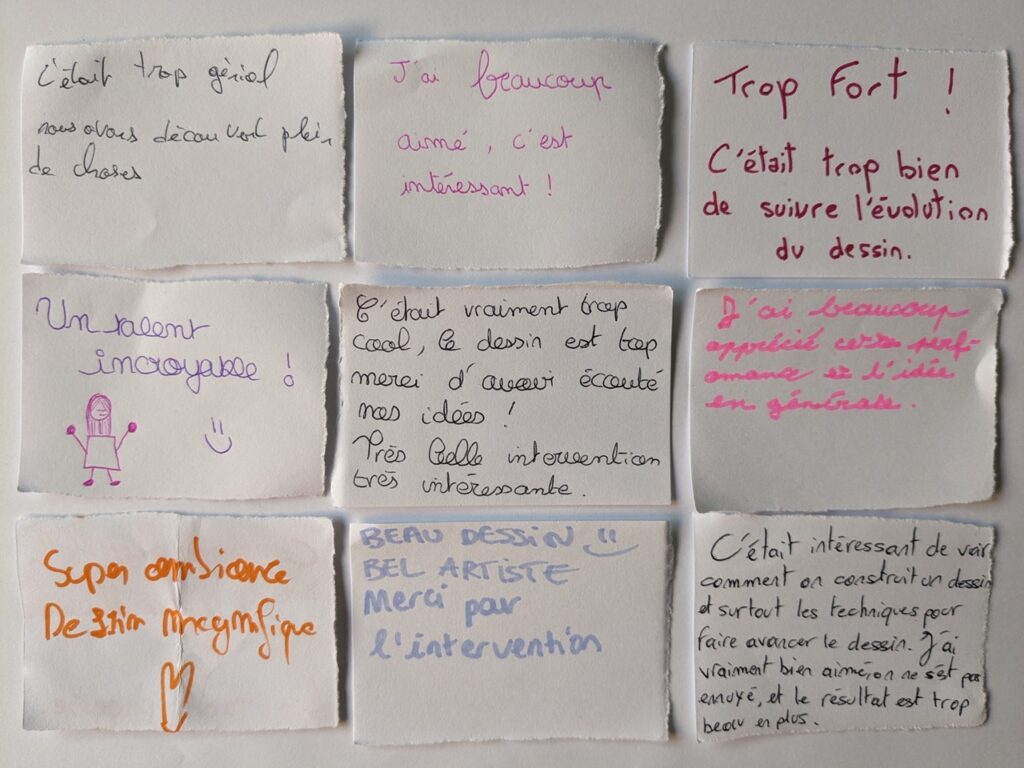 C'était trop génial
nous avons découvert plein
de choses
J'ai beaucoup
aimé, c'est
intéressant !
Trop Fort !
C'était trop bien
de suivre l'évolution
du dessin.
Un talent
incroyable !
C'était vraiment trop
cool, le dessin est trop
merci d'avoir écouté
nos idées !
Très Belle intervention
très intéressante.
J'ai beaucoup
apprécié cette perf-
omance et l'idée
en générale.
Super ambiance
Dessin magnifique
BEAU DESSIN
BEL ARTISTE
Merci pour
l'intervention
C'était intéressant de voir
comment on construit un dessin
et surtout les techniques pour
faire avancer le dessin. J'ai
vraiment bien aimé, on ne s'est pas
ennuyé, et le résultat est trop
beau en plus.